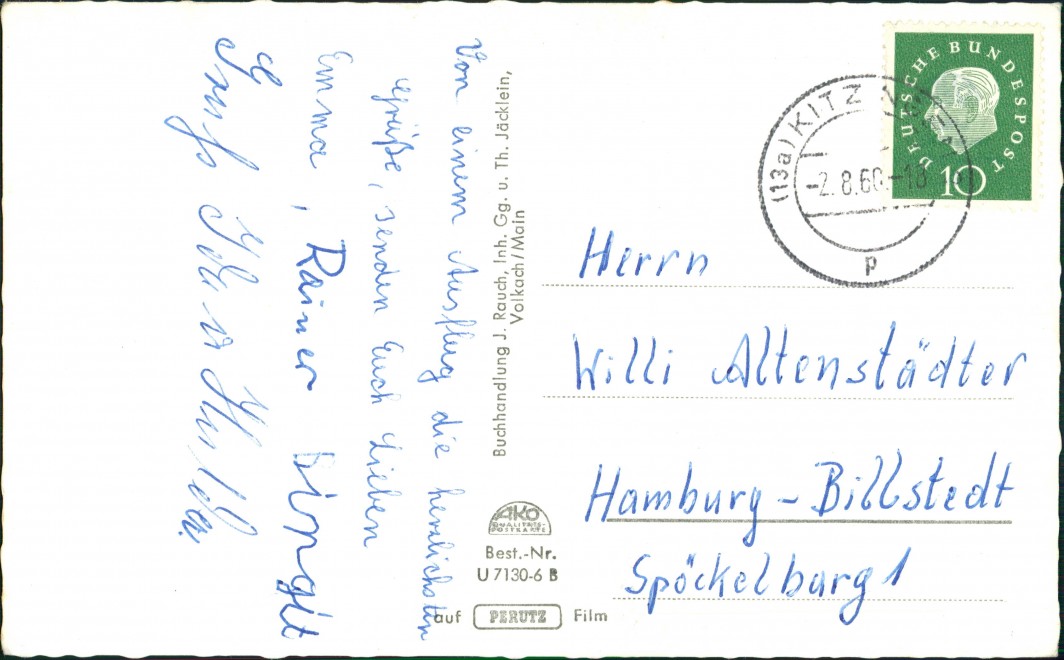 Von einem Ausflug die herzlichsten
Grüße, senden Euch Lieben
Emma, Rainer Birgit
&
Buchhandlung J. Rauch, Inh. Gg. u. Th. Jäcklein,
Volkach/Main
AKO
QUALITÄTS-
POSTKARTE
Best.-Nr.
U 7130-6 B
auf PERUTZ Film
DEUTSCHE BUNDESPOST
10
(13a) KITZINGEN
-2.8.60.-18
p
Herrn
Willi Altenstädter
Hamburg-Billstedt
Spöckelbarg 1